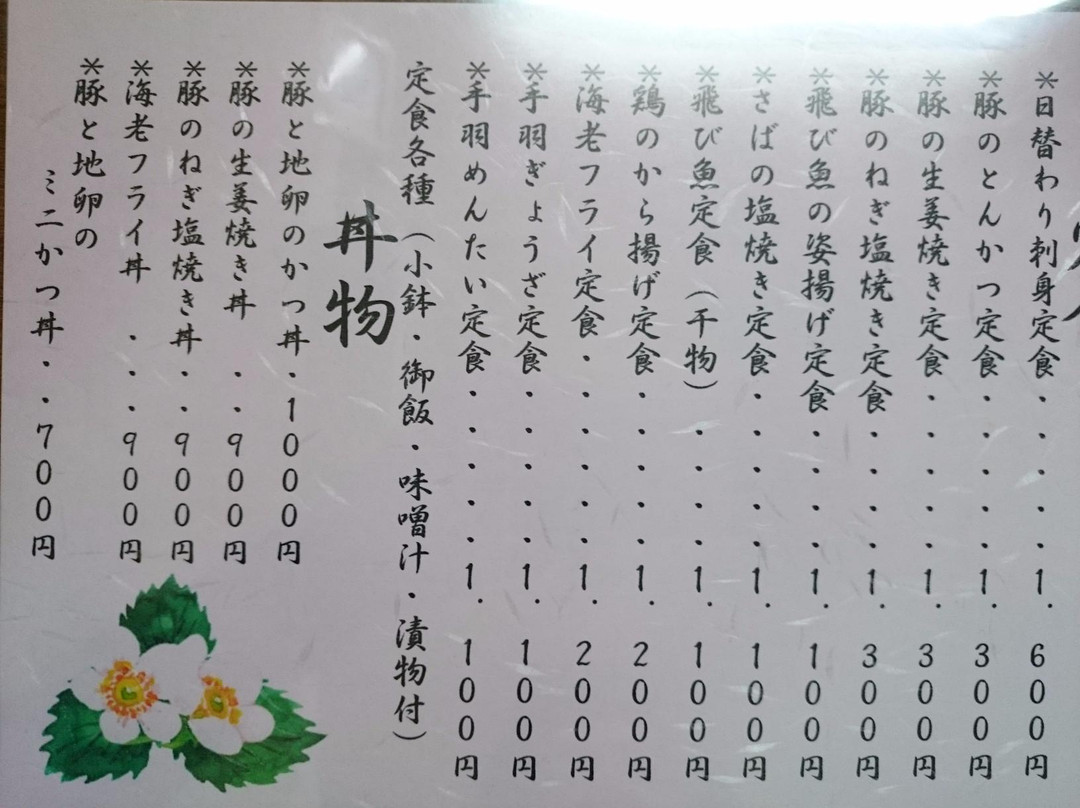 *日替わり刺身定食・・・・・1.600円
*豚のとんかつ定食・・・・・1.300円
*豚の生姜焼き定食・・・・・1.300円
*豚のねぎ塩焼き定食・・・・1.300円
*飛び魚の姿揚げ定食・・・・1.100円
*さばの塩焼き定食・・・・・1.100円
*飛び魚定食（干物）・・・・1.100円
*鶏のから揚げ定食・・・・・1.200円
*海老フライ定食・・・・・・1.200円
*手羽ぎょうざ定食・・・・・1.100円
*手羽めんたい定食・・・・・1.100円
定食各種（小鉢・御飯・味噌汁・漬物付）
丼物
*豚と地卵のかつ丼・1000円
*豚の生姜焼き丼・・900円
*豚のねぎ塩焼き丼・・900円
*海老フライ丼・・・900円
*豚と地卵の
ミニかつ丼・・700円